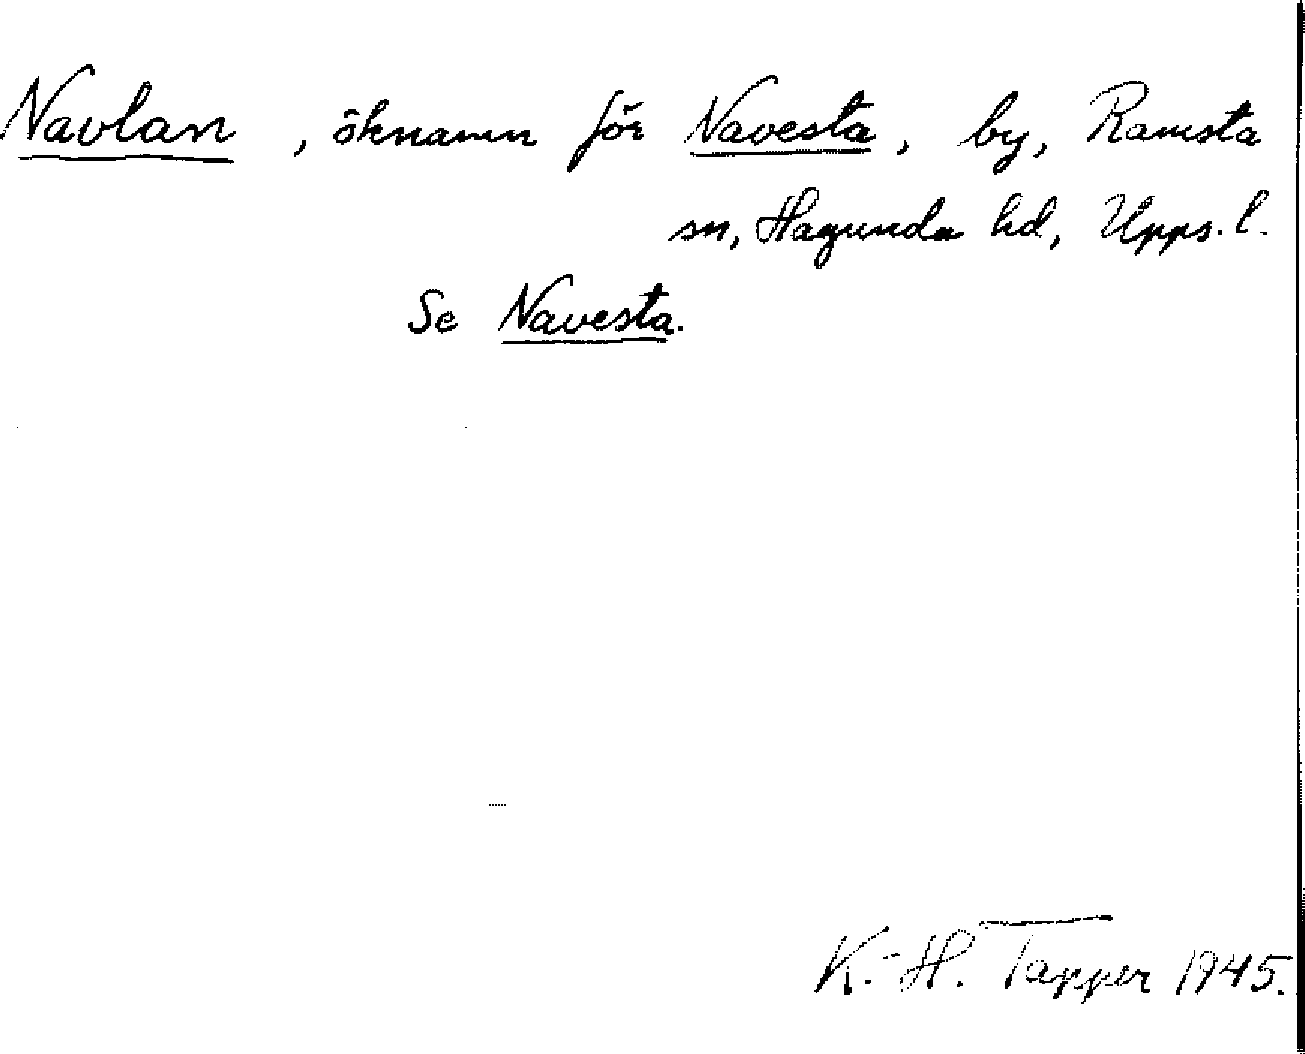 Navlan, öknamn för Navesta, by, Ramsta
sn, Hagunda hd, Upps. l.
Se Navesta.
K.-H. Tapper 1945.